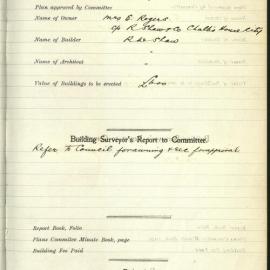 Plan approved by Committee
Name of Owner Mrs E. Rogers
c/o R. Shaw & Co Challis House City
Name of Builder R. de Shaw
Name of Architect
Value of Buildings to be erected
Building Surveyor's Report to Committee.
Refer to Council for awning & rec for approval
Report Book, Folio
Plans Committee Minute Book, page
Building Fee Paid